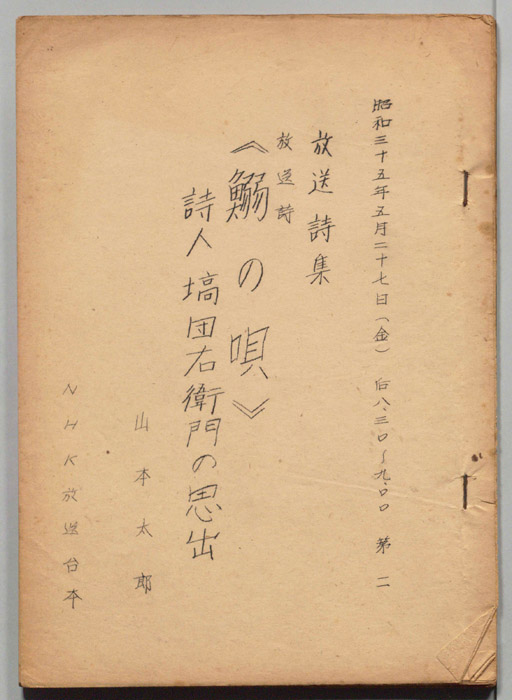 昭和三十五年五月二十七日（金）　后八、三〇〜九、〇〇　第二
放送詩集
放送詩
《鰯の唄》
詩人塙団右衛門の思出
山本太郎
NHK放送台本